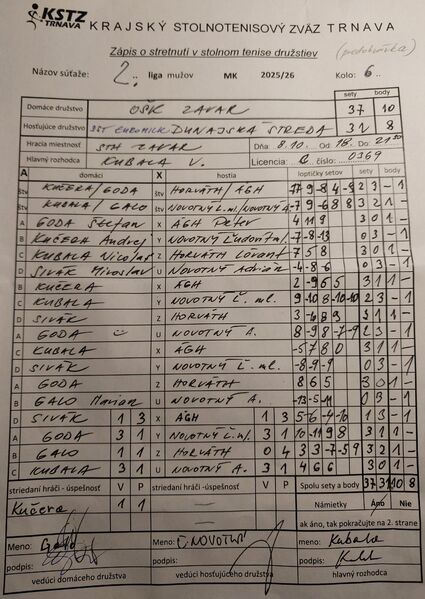 KSTZ TRNAVA KRAJSKÝ STOLNOTENISOVÝ ZVÄZ TRNAVA
Zápis o stretnutí v stolnom tenise družstiev (predohrávka)
Názov súťaže: 2. liga mužov MK 2025/26 Kolo: 6.
sety body
Domáce družstvo OŠK ZAVAR 37 10
Hosťujúce družstvo DUNAJSKÁ STREDA 31 8
Hracia miestnosť STH ZAVAR Dňa: 8.10. Od 18. Do 21:30
Hlavný rozhodca KUBALA V. Licencia C číslo: 0369
A domáci X hostia loptičky setov sety body
štv KUČERA/GODA štv HORVÁTH/ÁGH 2 3 - 1
štv KUBALA/GALO štv NOVOTNÝ Ľ.ml./NOVOTNÝ A. -7 9 -6 8 8 3 2 1 -
A GODA Štefan X ÁGH Peter 4 11 9 3 0 1 -
B KUČERA Andrej Y NOVOTNÝ Ľudovít ml. -7 -8 -13 0 3 - 1
C KUBALA Nicolas Z HORVÁTH Lórant 7 5 8 3 0 1 -
D SIVÁK Miroslav U NOVOTNÝ Adrián -4 -8 6 0 3 - 1
B KUČERA X ÁGH 2 -9 6 5 3 1 1 -
C KUBALA Y NOVOTNÝ Ľ. ml. 9 -10 8 -10 -10 2 3 - 1
D SIVÁK Z HORVÁTH 3 -4 8 9 3 1 1 -
A GODA U NOVOTNÝ A. 8 -9 8 -7 -9 2 3 - 1
C KUBALA X ÁGH -5 7 8 0 3 1 1 -
D SIVÁK Y NOVOTNÝ Ľ. ml. -8 -9 -9 0 3 - 1
A GODA Z HORVÁTH 8 6 5 3 0 1 -
B GALO Marian U NOVOTNÝ A. -13 -5 -11 0 3 - 1
D SIVÁK 1 3 X ÁGH 1 3 5 -6 -4 -10 1 3 - 1
A GODA 3 1 Y NOVOTNÝ Ľ. ml. 3 1 10 -11 9 8 3 1 1 -
B GALO 1 1 Z HORVÁTH 0 4 3 3 -7 -5 9 3 2 1 -
C KUBALA 3 1 U NOVOTNÝ A. 3 1 4 6 6 3 0 1 -
striedaní hráči - úspešnosť V P striedaní hráči - úspešnosť V P Spolu sety a body 37 31 10 8
Kučera 1 1 Námietky Áno Nie
ak áno, tak pokračujte na 2. strane
Meno: Meno: Ľ. NOVOTNÝ meno: Kubala
podpis: podpis: podpis:
vedúci domáceho družstva vedúci hosťovského družstva hlavný rozhodca